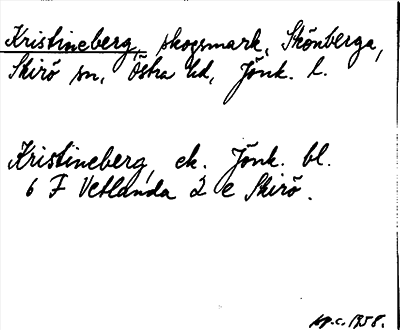 Kristineberg, skogsmark, Skönberga,
Skirö sn, Östra hd, Jönk. l.
Kristineberg, ek. Jönk. bl.
6 F Vetlanda 2 e Skirö.
sp.c. 1958.